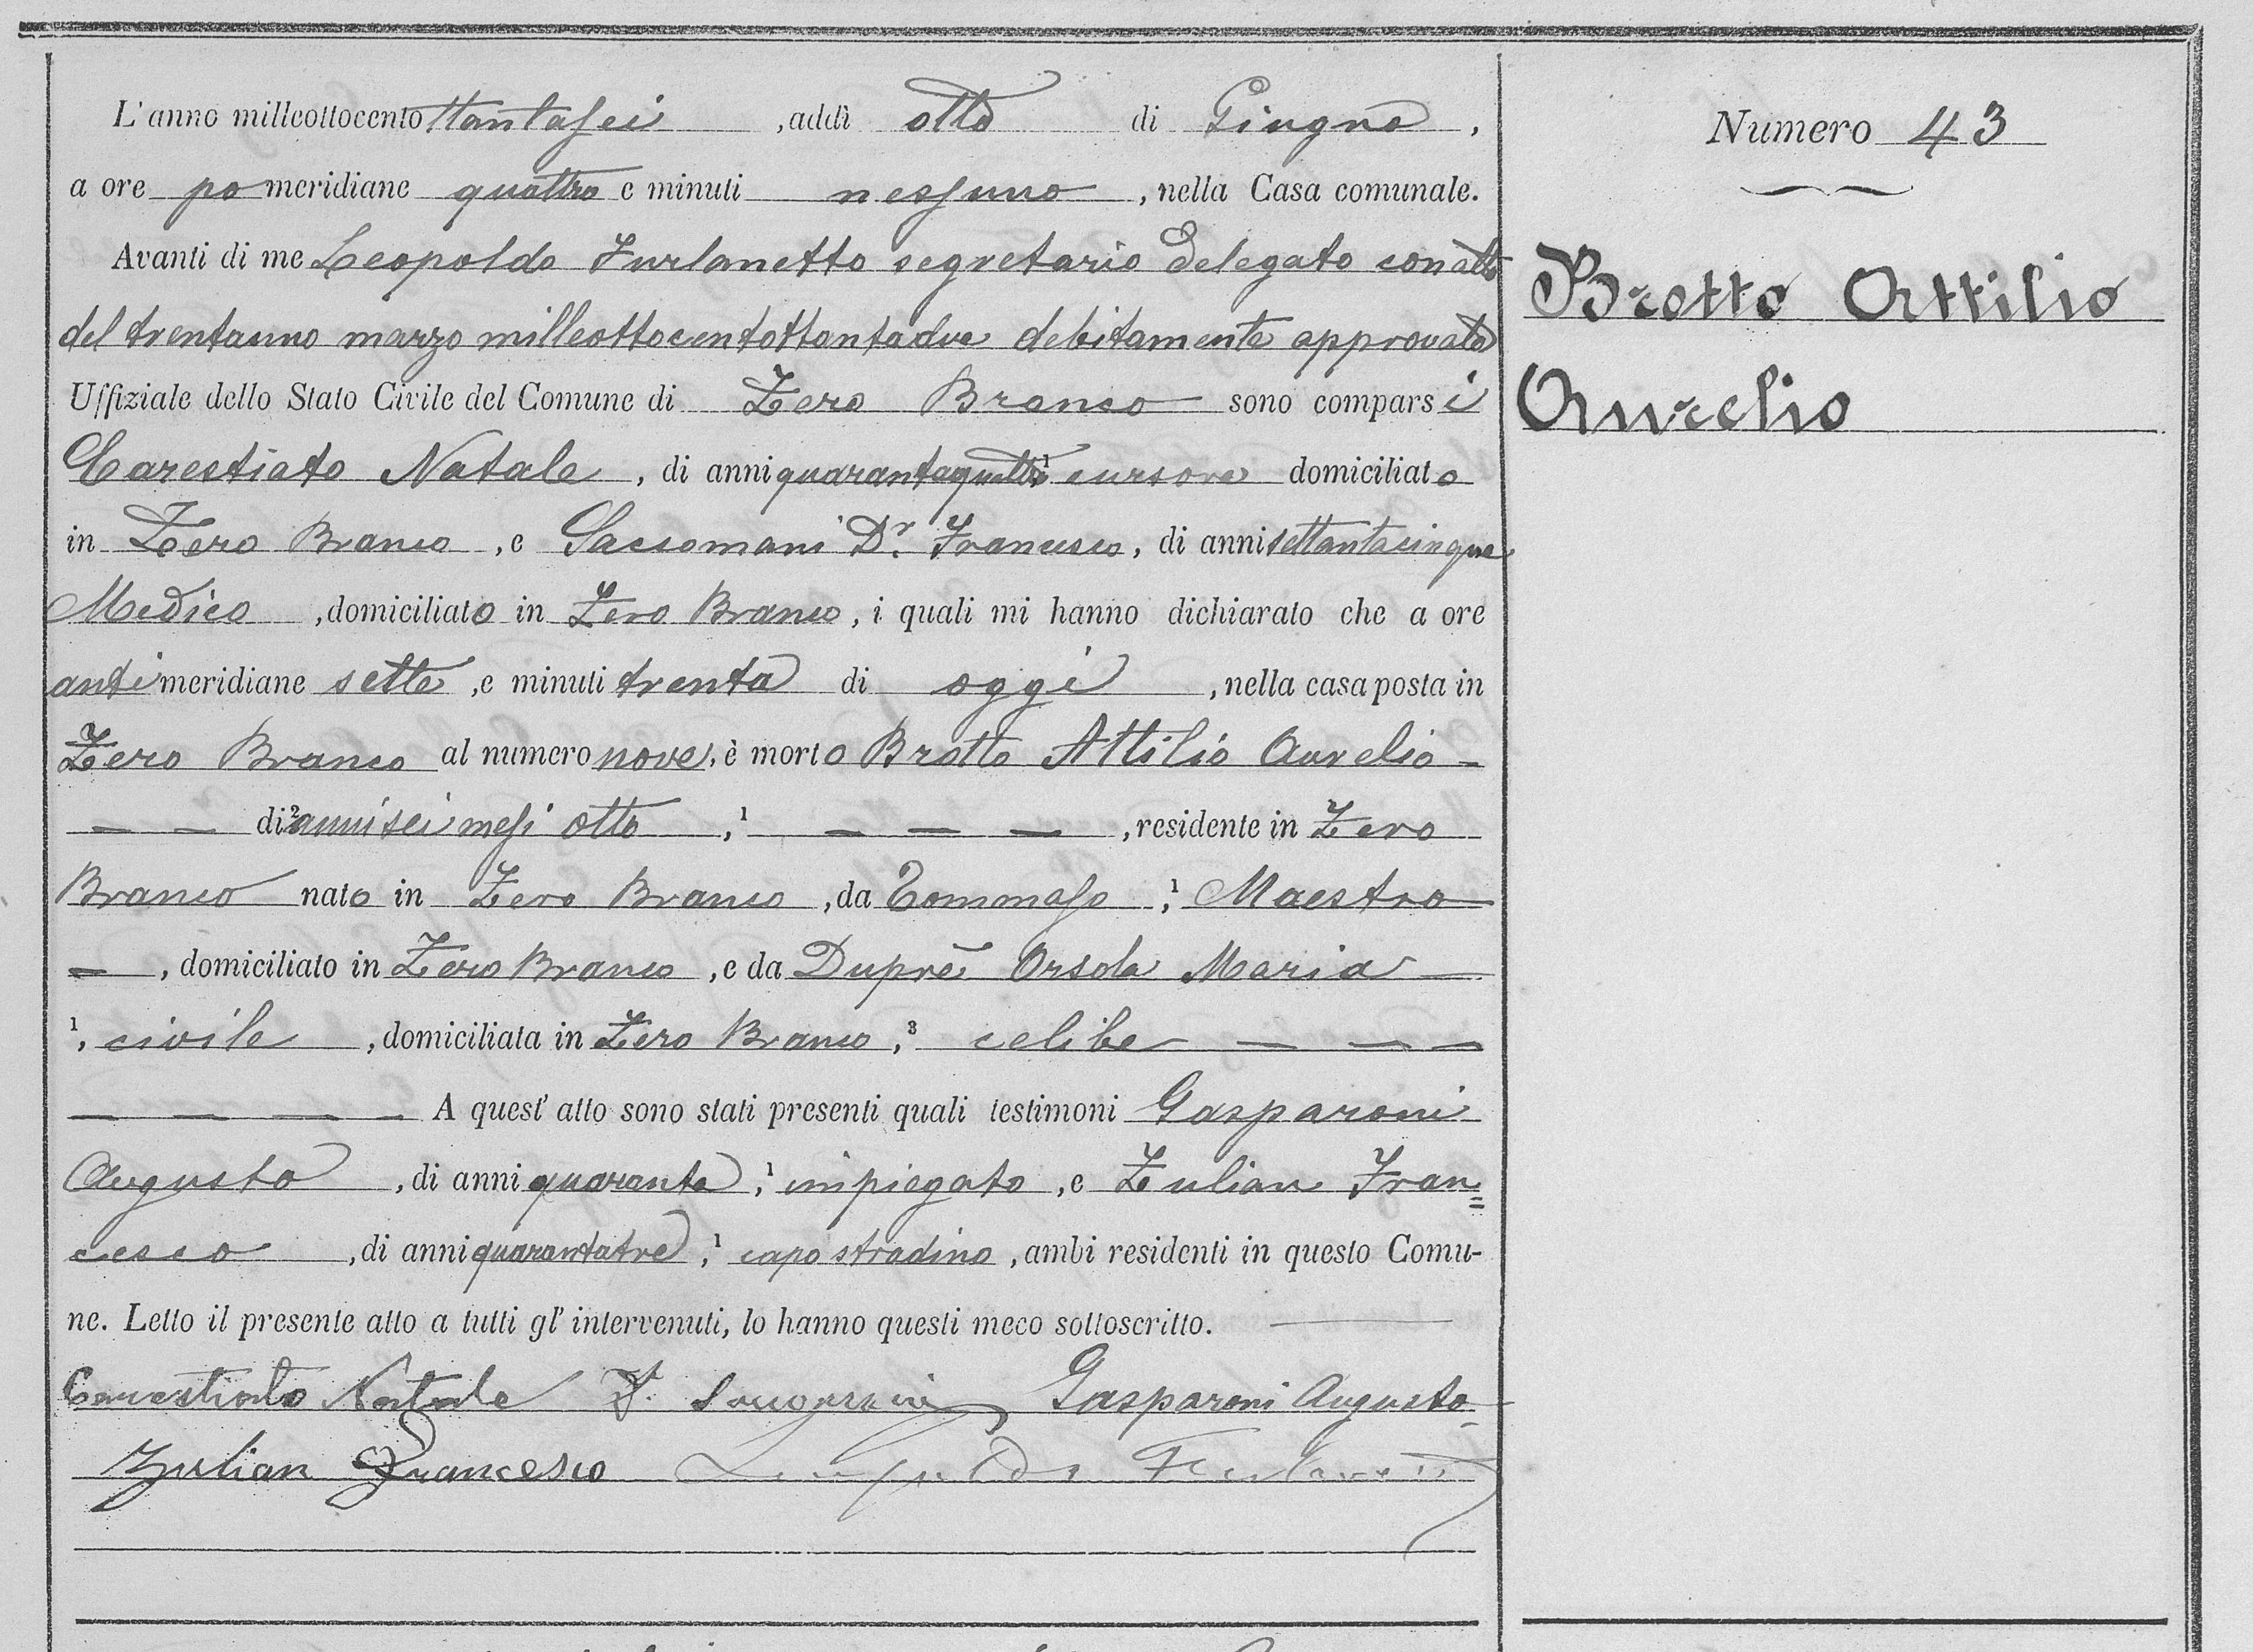 L'anno milleottocentottantasei, addì otto di Giugno,
a ore pomeridiane quattro e minuti nessuno, nella Casa comunale.
Avanti di me Leopoldo Furlanetto segretario delegato con atto
del trentauno marzo milleottocentottantadue debitamente approvato
Uffiziale dello Stato Civile del Comune di Zero Branco sono comparsi
Carestiato Natale, di anni quarantaquattro,¹ cursore domiciliato
in Zero Branco, e Saccomani Dr. Francesco, di anni settantacinque
Medico, domiciliato in Zero Branco, i quali mi hanno dichiarato che a ore
antimeridiane sette, e minuti trenta di oggi, nella casa posta in
Zero Branco al numero nove, è morto Brotto Attilio Aurelio —
— — di² anni sei mesi otto,¹ — — —, residente in Zero
Branco nato in Zero Branco, da Tommaso,¹ Maestro
—, domiciliato in Zero Branco, e da Duprè Orsola Maria —
,¹ civile, domiciliata in Zero Branco,³ celibe — — —
— — — — A quest' atto sono stati presenti quali testimoni Gasparoni
Augusto, di anni quaranta,¹ impiegato, e Zulian Fran=
cesco, di anni quarantatre,¹ capo stradino, ambi residenti in questo Comu-
ne. Letto il presente atto a tutti gl' intervenuti, lo hanno questi meco sottoscritto.
Carestiato Natale Dr. Gasparoni Augusto
Zulian Francesco Leopoldo Furlanetto
Numero 43
Brotto Attilio
Aurelio